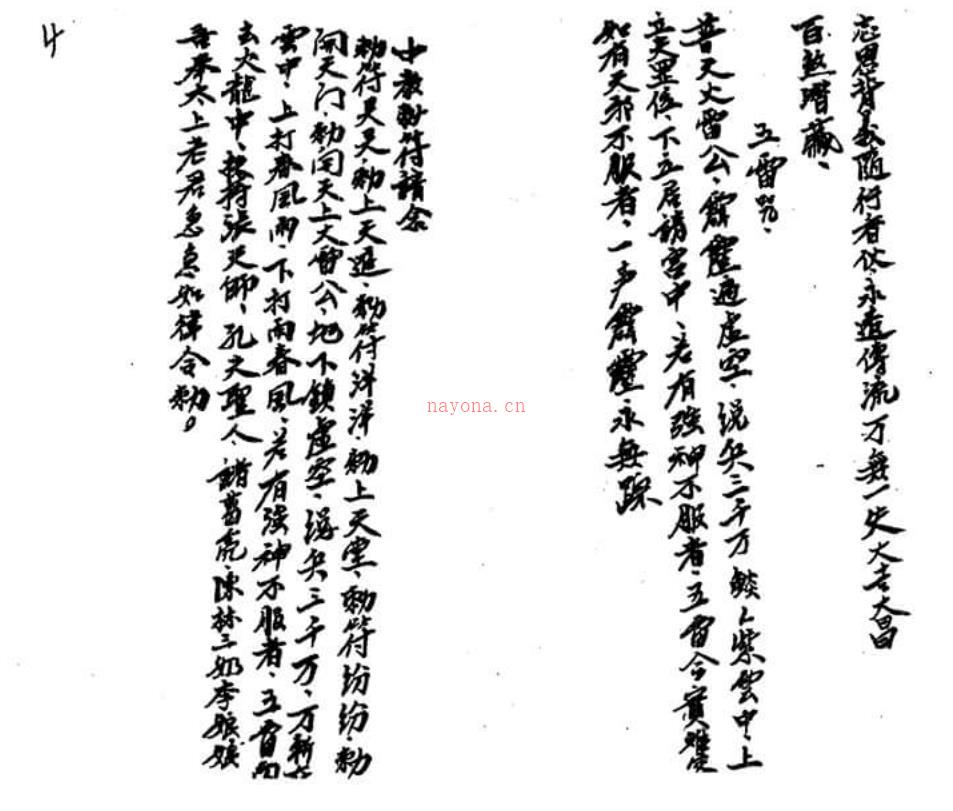 忘恩背義隨行者伙、永遠傳流万無一失大吉大昌
百煞潛藏、
五雷咒、
普天大雷公、霹靂遍虛空、統兵三千万 紫雲中、上
立天罡位、下立居諸宮中、若有強神不服者、五雷令
如有天邪不服者、一声霹靂永無踪
中教勅符請念
勅符天天、勅上天庭、勅符洋洋、勅上天堂、勅符纷纷、勅
開天门、勅開天上大雷公、地下鎖虛空、統兵三千万、万
雲中、上打春風雨、下打雨春風、若有強神不服者、五雷
去火龍中、扶持張天師、孔夫聖人、諸葛亮、陳林三奶李娘娘
吾奉太上老君急急如律令勅。
4
nayona.cn